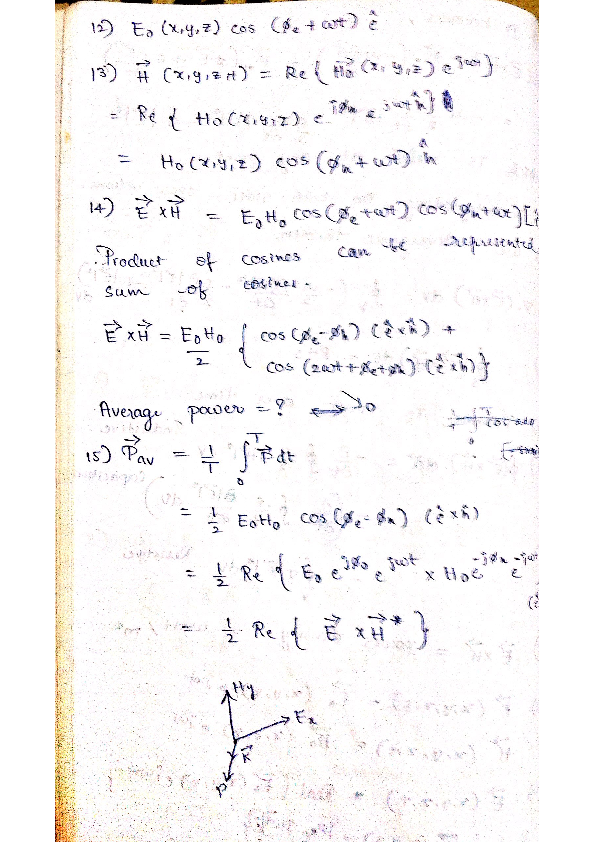 12) E₀ (x,y,z) cos (φₑ + ωt) ê
13) H⃗ (x,y,z,t) = Re { H⃗₀ (x,y,z) e^{jωt} }
= Re { H₀(x,y,z) e^{jφₕ} e^{jωt} ĥ }
= H₀(x,y,z) cos (φₕ + ωt) ĥ
14) E⃗ x H⃗ = E₀H₀ cos(φₑ+ωt) cos(φₕ+ωt) [
Product of cosines can be represented
sum of cosines.
E⃗ x H⃗ = E₀H₀/2 { cos (φₑ-φₕ) (ê x ĥ) +
cos (2ωt + φₑ + φₕ) (ê x ĥ) }
Average power = ? → 0
15) P⃗av = 1/T ∫₀ᵀ P⃗ dt
= 1/2 E₀H₀ cos (φₑ-φₕ) (ê x ĥ)
= 1/2 Re { E₀ e^{jφₑ} e^{jωt} x H₀ e^{-jφₕ} e^{-jωt}
= 1/2 Re { E⃗ x H⃗* }
Hy
Ex
K⃗
P